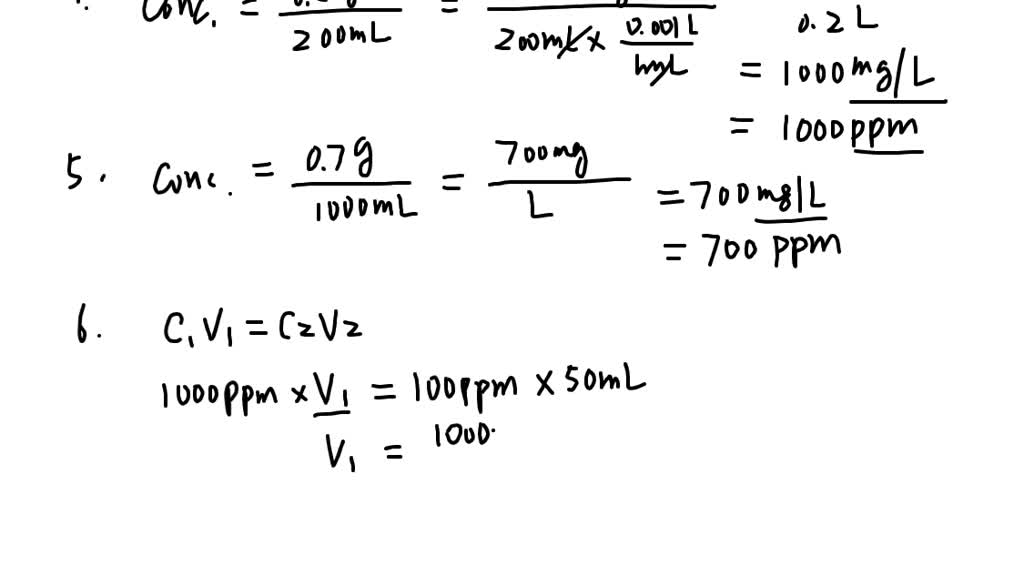 Conc. = / 200mL = / 200mL × 0.001L / 1mL
0.2 L
= 1000 mg/L
= 1000 ppm
5. Conc. = 0.7g / 1000mL = 700mg / L = 700 mg/L
= 700 ppm
6. C₁V₁ = C₂V₂
1000ppm × V₁ = 100ppm × 50mL
V₁ = 1000